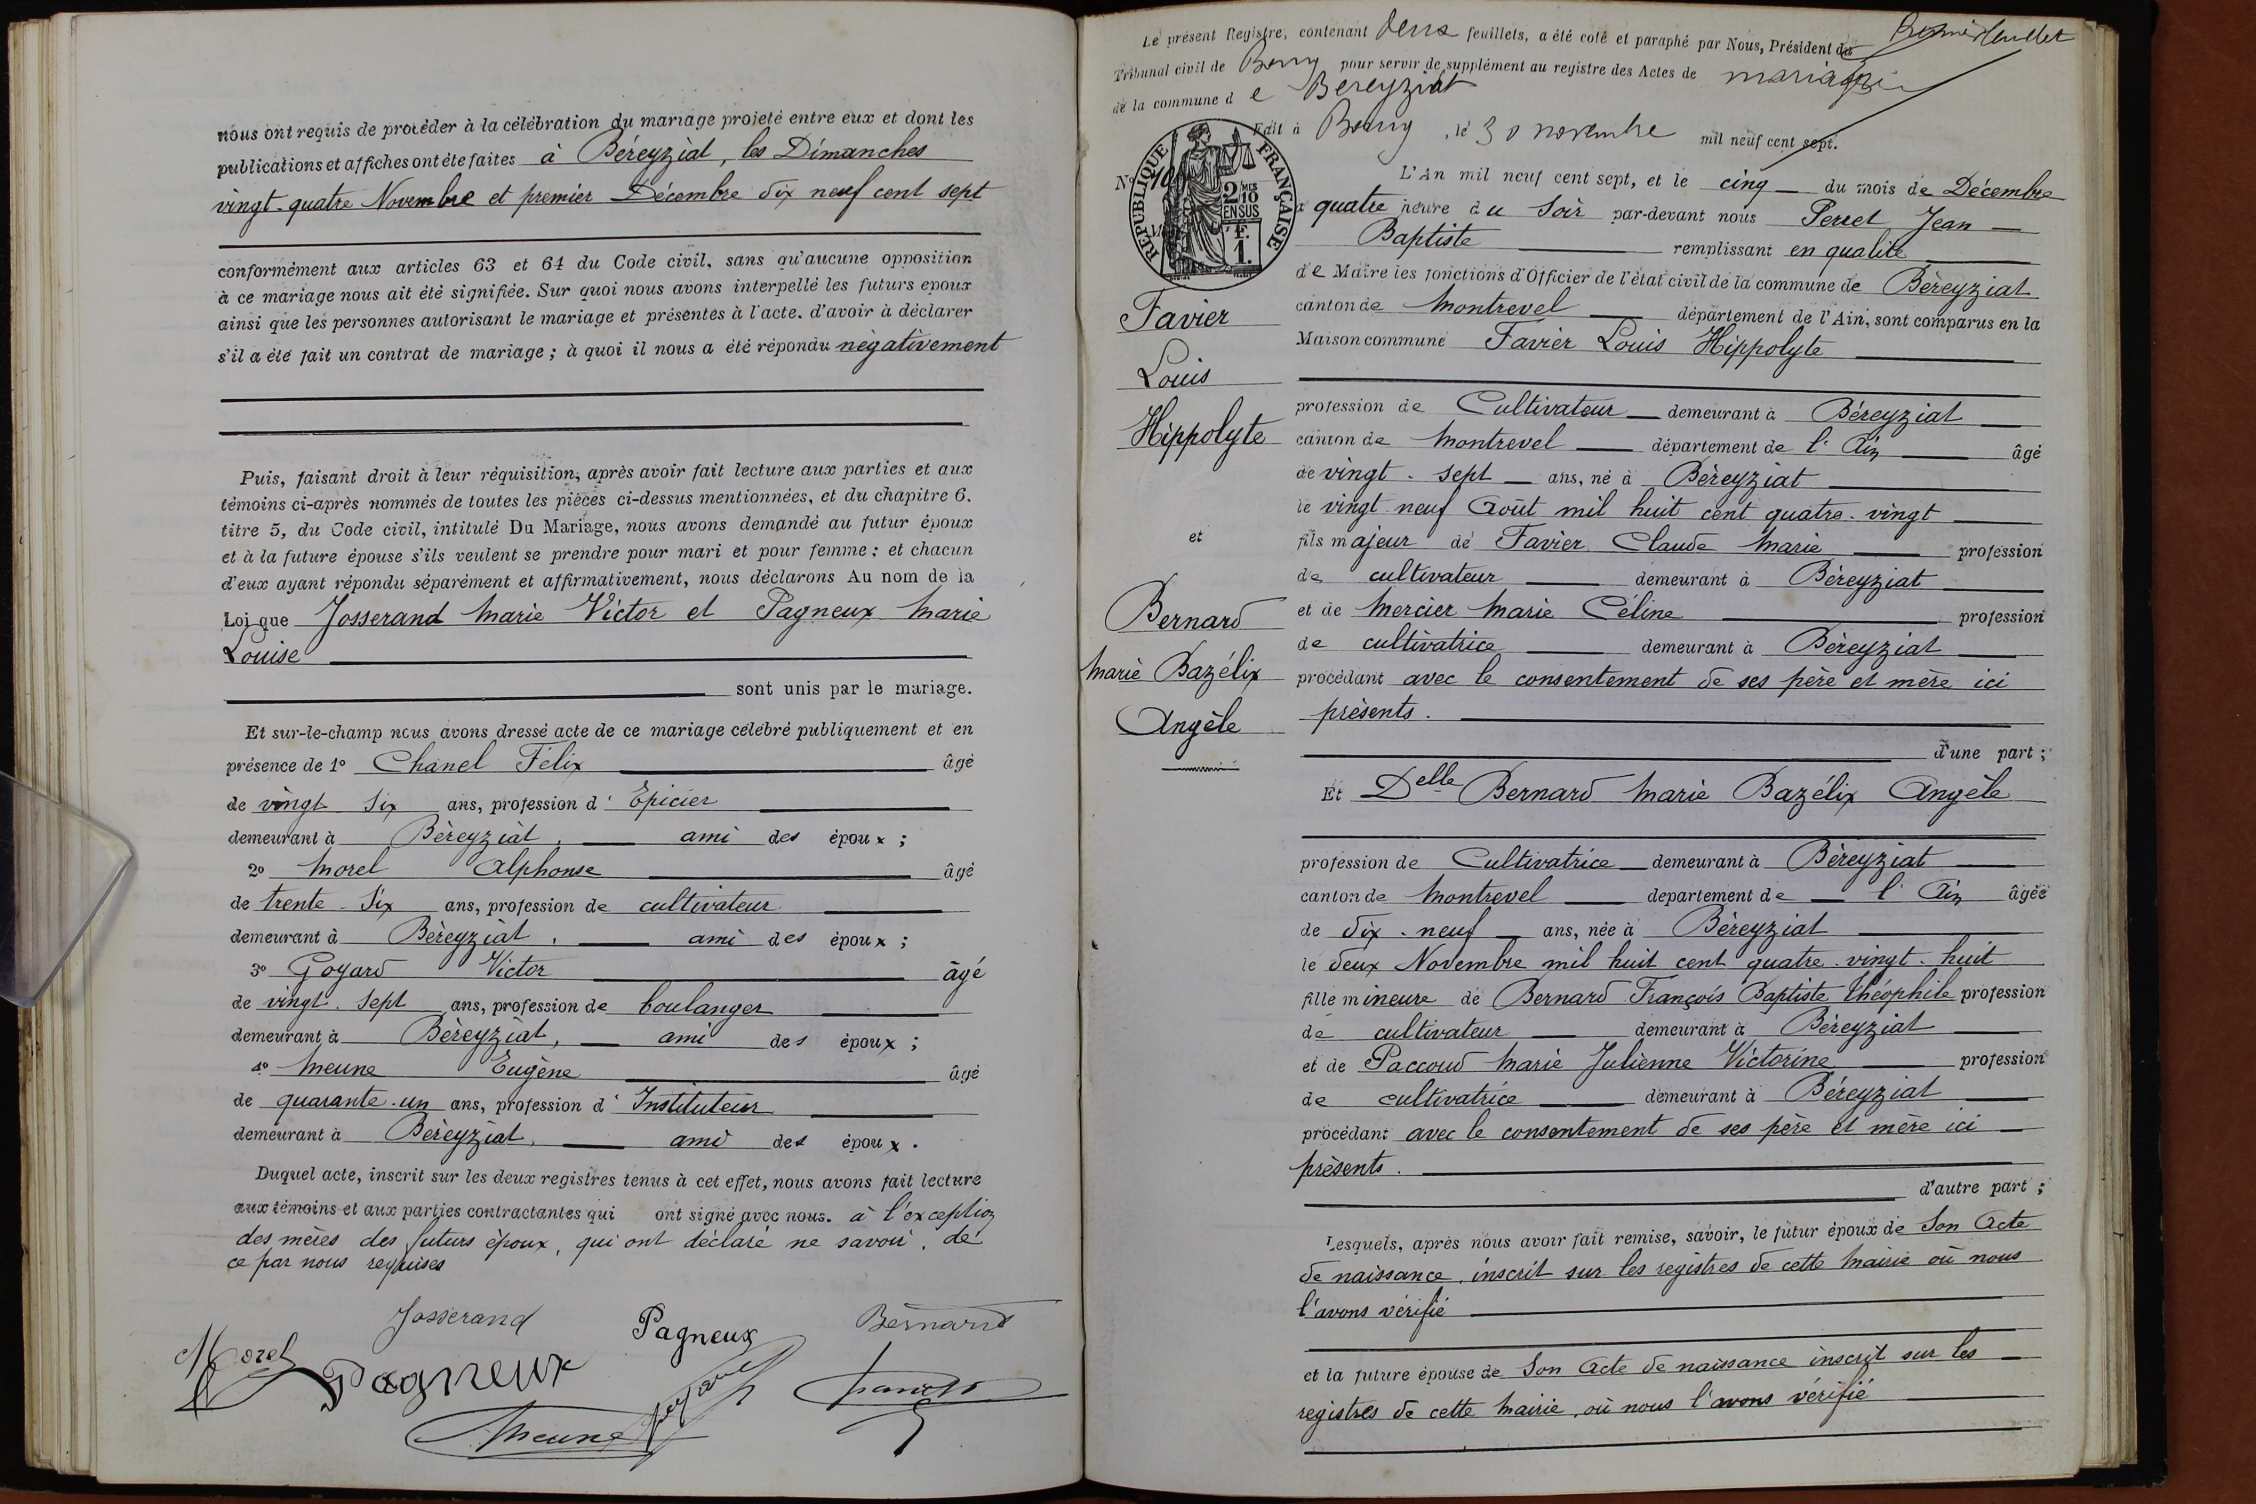 nous ont requis de procéder à la célébration du mariage projeté entre eux et dont les
publications et affiches ont été faites à Béreyziat, les Dimanches
vingt-quatre Novembre et premier Décembre dix neuf cent sept
conformément aux articles 63 et 64 du Code civil, sans qu'aucune opposition
à ce mariage nous ait été signifiée. Sur quoi nous avons interpellé les futurs époux
ainsi que les personnes autorisant le mariage et présentes à l'acte, d'avoir à déclarer
s'il a été fait un contrat de mariage ; à quoi il nous a été répondu négativement
Puis, faisant droit à leur réquisition, après avoir fait lecture aux parties et aux
témoins ci-après nommés de toutes les pièces ci-dessus mentionnées, et du chapitre 6,
titre 5, du Code civil, intitulé Du Mariage, nous avons demandé au futur époux
et à la future épouse s'ils veulent se prendre pour mari et pour femme ; et chacun
d'eux ayant répondu séparément et affirmativement, nous déclarons Au nom de la
Loi que Josserand Marie Victor et Pagneux Marie
Louise
sont unis par le mariage.
Et sur-le-champ nous avons dressé acte de ce mariage célébré publiquement et en
présence de 1º Chanel Félix âgé
de vingt six ans, profession d' Epicier
demeurant à Béreyziat, ami des époux ;
2º Morel Alphonse âgé
de trente-six ans, profession de cultivateur
demeurant à Béreyziat, ami des époux ;
3º Goyard Victor âgé
de vingt-sept ans, profession de boulanger
demeurant à Béreyziat, ami des époux ;
4º Meune Eugène âgé
de quarante-un ans, profession d' Instituteur
demeurant à Béreyziat, ami des époux.
Duquel acte, inscrit sur les deux registres tenus à cet effet, nous avons fait lecture
aux témoins et aux parties contractantes qui ont signé avec nous. à l'exception
des mères des futurs époux, qui ont déclaré ne savoir, de
ce par nous requises
Josserand Pagneux Bernard
Morel Pagneux
Meune
Le présent Registre, contenant deux feuillets, a été coté et paraphé par Nous, Président du
Tribunal civil de Bourg pour servir de supplément au registre des Actes de mariage
de la commune de Béreyziat
Fait à Bourg, le 30 novembre mil neuf cent sept.
RÉPUBLIQUE FRANÇAISE
2/10 MES
EN SUS
1 F.
Nº 10
L'An mil neuf cent sept, et le cinq du mois de Décembre
à quatre heure du Soir par-devant nous Perret Jean
Baptiste remplissant en qualité
de Maire les fonctions d'Officier de l'état civil de la commune de Béreyziat
canton de Montrevel département de l'Ain, sont comparus en la
Maison commune Favier Louis Hippolyte
Favier
Louis
Hippolyte
et
Bernard
Marie Bazélix
Angèle
profession de Cultivateur demeurant à Béreyziat
canton de Montrevel département de l'Ain âgé
de vingt-sept ans, né à Béreyziat
le vingt neuf Août mil huit cent quatre-vingt
fils majeur de Favier Claude Marie profession
de cultivateur demeurant à Béreyziat
et de Mercier Marie Céline profession
de cultivatrice demeurant à Béreyziat
procédant avec le consentement de ses père et mère ici
présents.
d'une part ;
Et Delle Bernard Marie Bazélix Angèle
profession de Cultivatrice demeurant à Béreyziat
canton de Montrevel département de l'Ain âgée
de dix-neuf ans, née à Béreyziat
le deux Novembre mil huit cent quatre-vingt-huit
fille mineure de Bernard François Baptiste Théophile profession
de cultivateur demeurant à Béreyziat
et de Paccoud Marie Julienne Victorine profession
de cultivatrice demeurant à Béreyziat
procédant avec le consentement de ses père et mère ici
présents.
d'autre part ;
Lesquels, après nous avoir fait remise, savoir, le futur époux de Son Acte
de naissance, inscrit sur les registres de cette Mairie où nous
l'avons vérifié
et la future épouse de Son Acte de naissance inscrit sur les
registres de cette Mairie, où nous l'avons vérifié